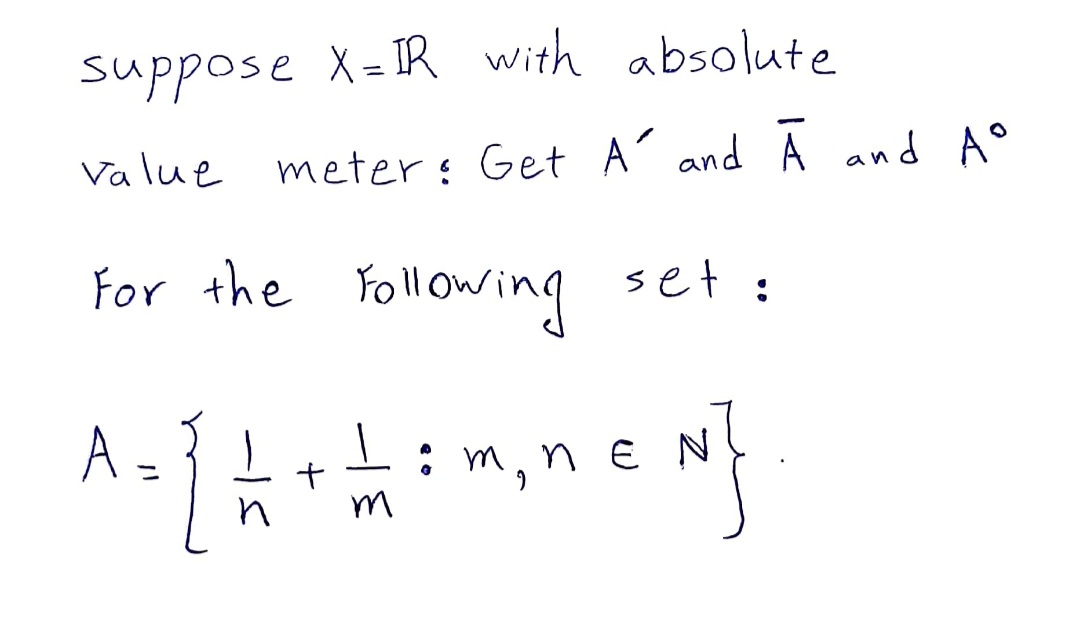 suppose X = ℝ with absolute
value meter : Get A′ and Ā and A°
For the Following set :
A = { 1/n + 1/m : m, n ∈ N } .